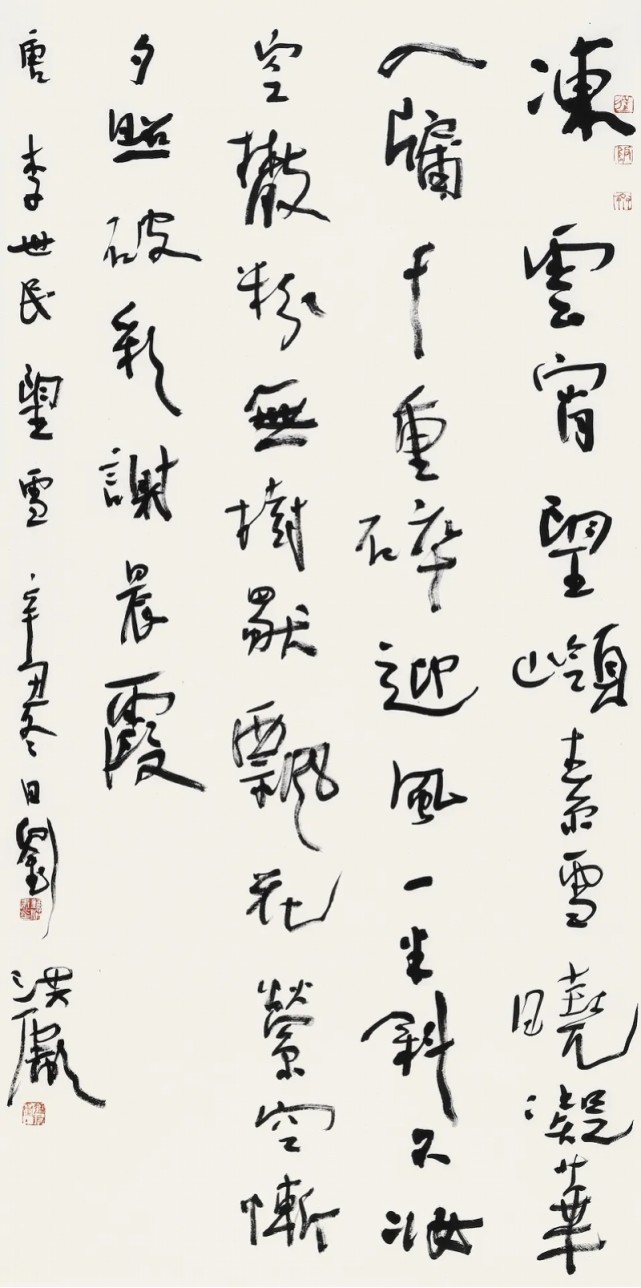 凍雲宵望嶺素雪曉凝華
入牖千重碎迎風一半斜不妝
空散粉無樹獨飄花縈空慚
夕照破彩謝晨霞
唐李世民望雪辛丑冬日劉洪